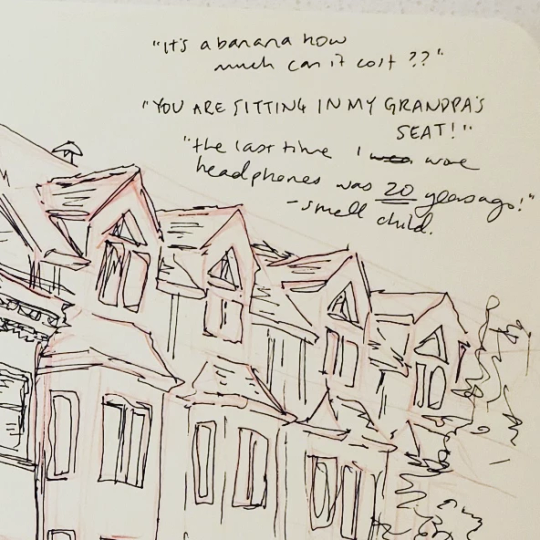 "It's a banana how
much can it cost ??"
"YOU ARE SITTING IN MY GRANDPA'S
SEAT!"
"the last time I was wore
headphones was 20 years ago!"
- small child.